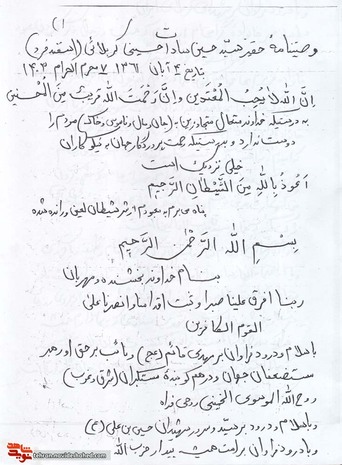 (۱
وصیتنامهٔ حقیر سید حسین سادات حسینی کربلائی (اسفندفرد)
بتاریخ ۴ آبان ۱۳۶۱ ۷ محرم الحرام ۱۴۰۳
اِنَّ اللهَ لا یُحِبُّ المُعْتَدینَ وَاِنَّ رَحْمَتَ اللهِ قَریبٌ مِنَ المُحْسِنینَ
خداوند متعال متجاوزین به (مال و جان و ناموس و خاک) مردم را
دوست ندارد و رحمت پروردگار جهان به نیکوکاران
خیلی نزدیک است
اَعُوذُ بِاللهِ مِنَ الشَّیْطانِ الرَّجیمِ
پناه می‌برم به معبودم از شر شیطان لعین و رانده شده
بِسْمِ اللهِ الرَّحْمنِ الرَّحیمِ
بنام خداوند بخشنده و مهربان
ربنا افرغ علینا صبرا و ثبت اقدامنا و انصرنا علی
القوم الکافرین
با سلام و درود فراوان بر مهدی قائم (عج) و نائب بر حق او رهبر
مستضعفان جهان و درهم کوبنده مستکبران (شرق و غرب)
روح الله الموسوی الخمینی روحی فداه
و با سلام و درود بر سید و سرور شهیدان حسین بن علی (ع)
و با درود فراوان بر امت همیشه بیدار حزب الله
tehran.navideshahed.com